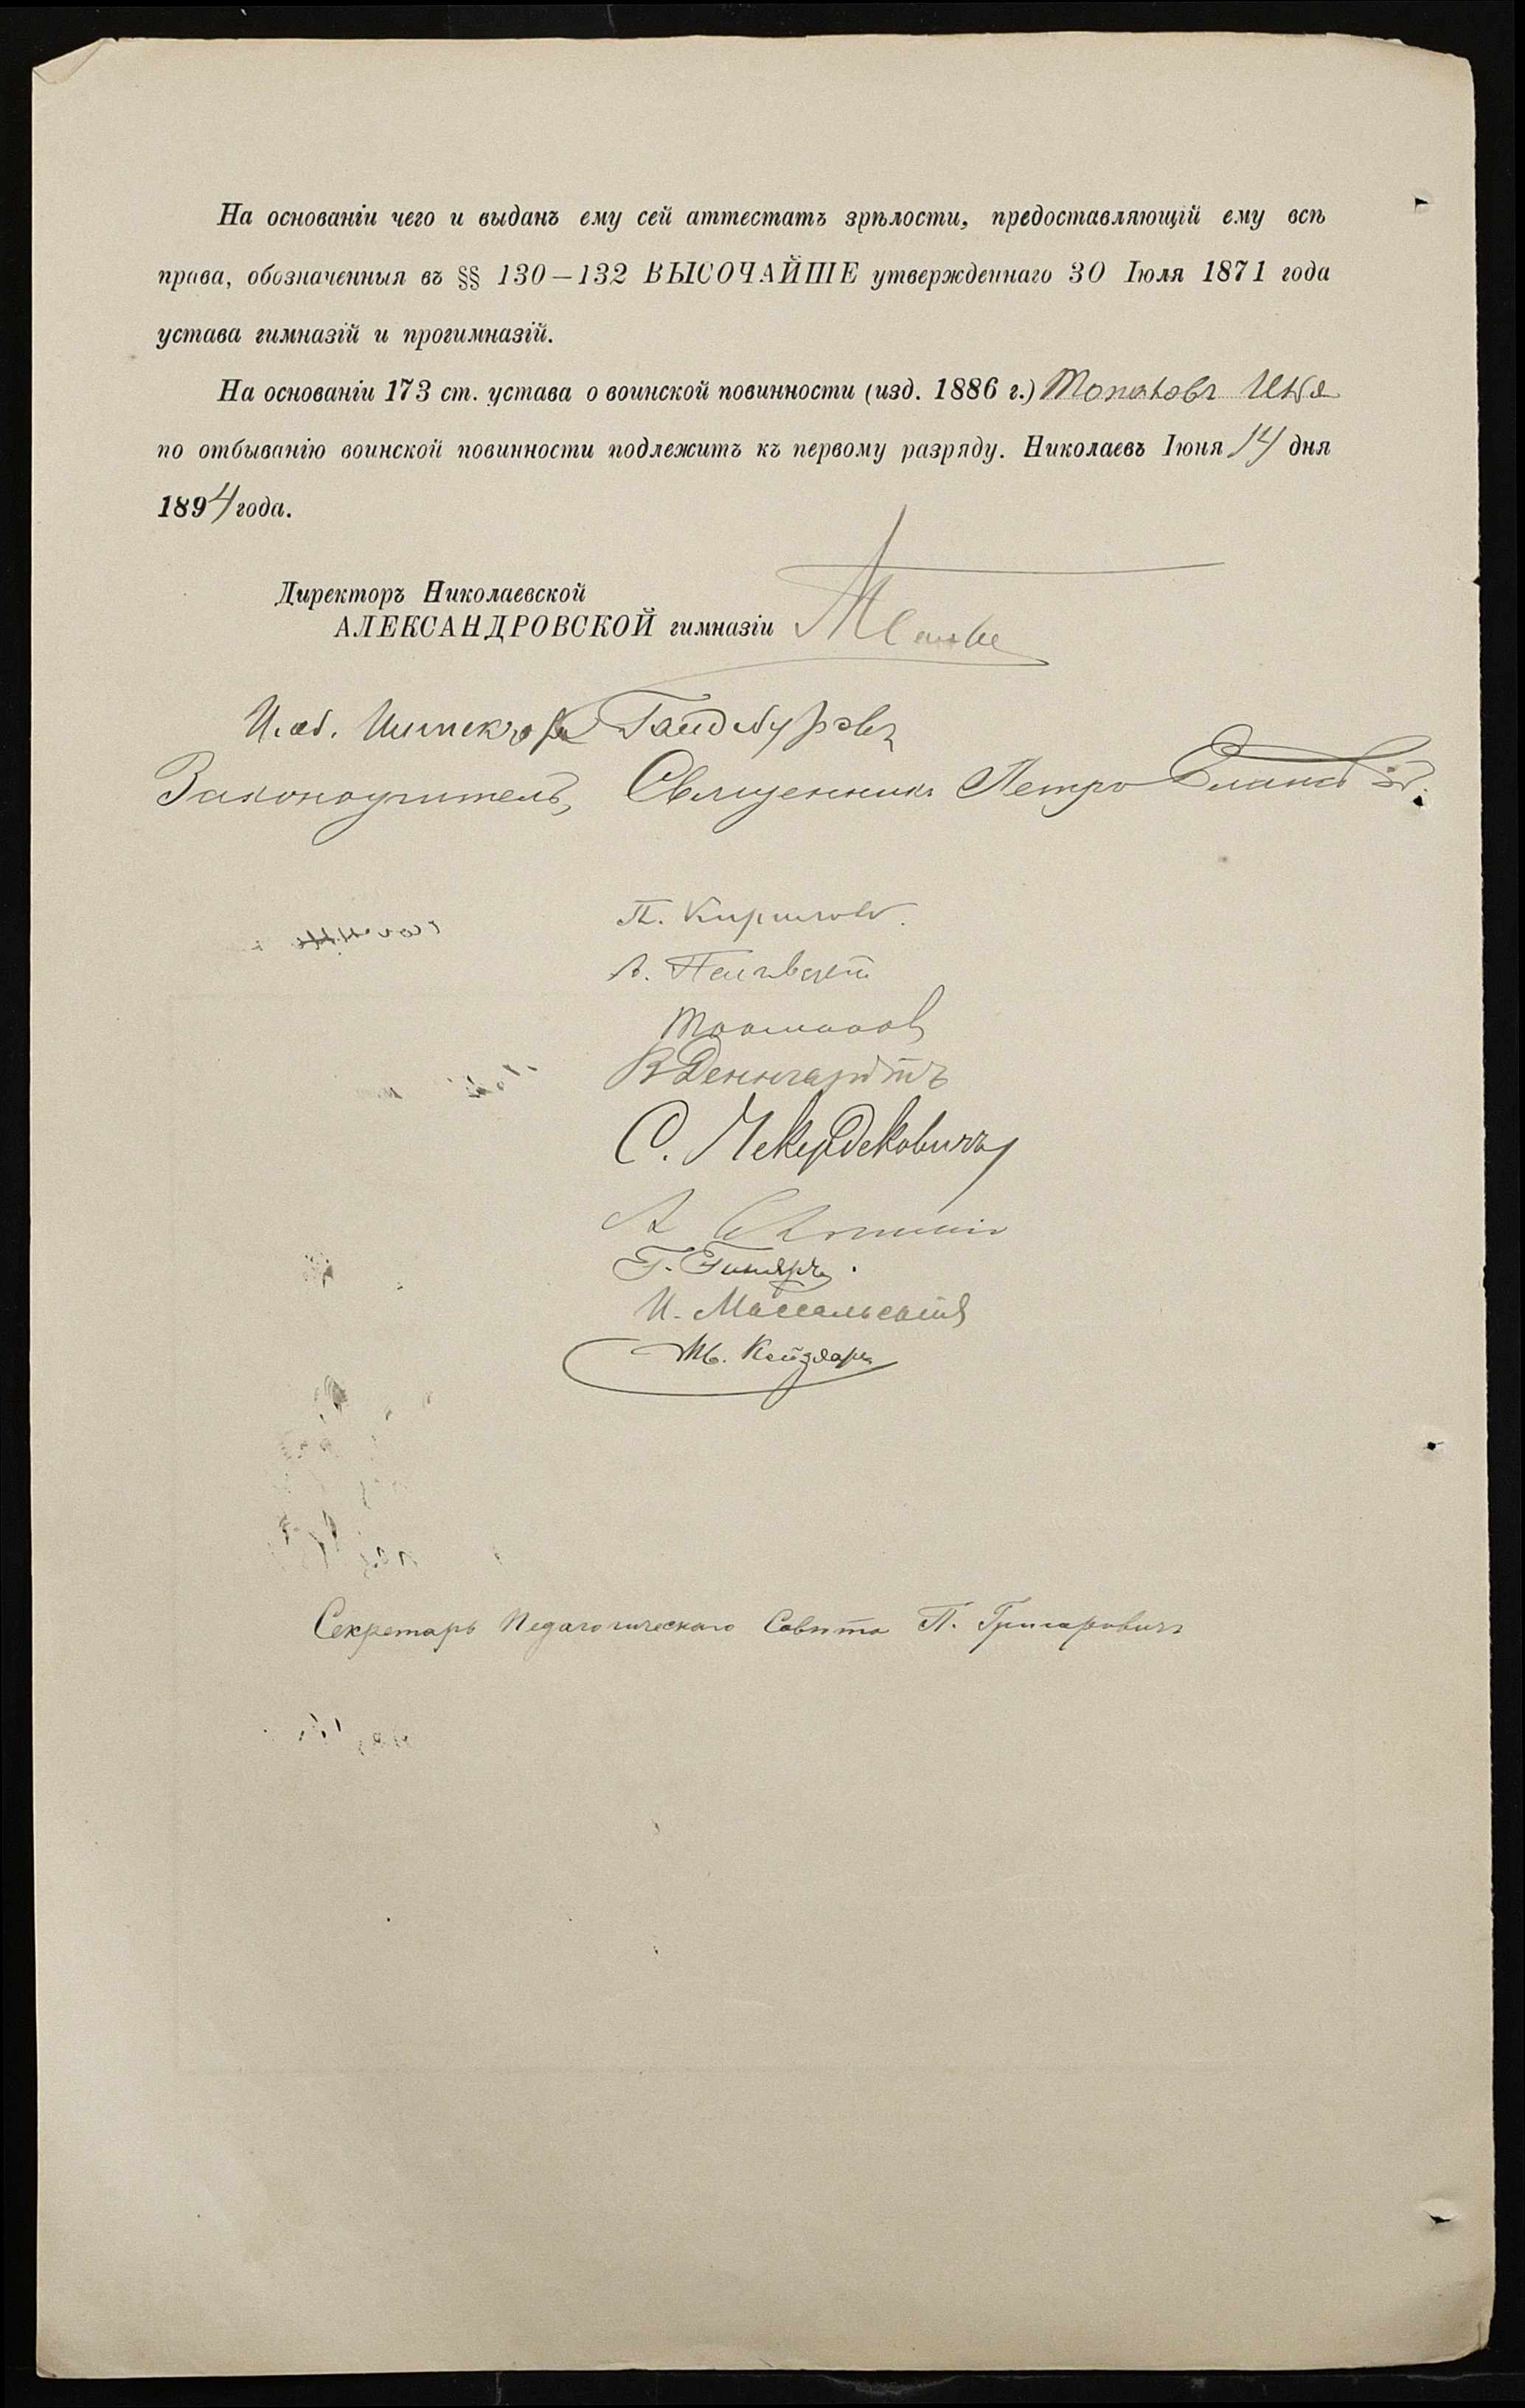 На основаніи чего и выданъ ему сей аттестатъ зрѣлости, предоставляющій ему всѣ
права, обозначенныя въ §§ 130—132 ВЫСОЧАЙШЕ утвержденнаго 30 Іюля 1871 года
устава гимназій и прогимназій.
На основаніи 173 ст. устава о воинской повинности (изд. 1886 г.)
по отбыванію воинской повинности подлежитъ къ первому разряду. Николаевъ Іюня 14 дня
1894 года.
Директоръ Николаевской
АЛЕКСАНДРОВСКОЙ гимназіи
И. об. Инспектора Гайдебуровъ
Законоучитель, Священникъ Петръ
П.
В Деннгардтъ
С. Чекердековичъ
И. Массальскій
Секретарь Педагогическаго Совѣта П. Григоровичъ